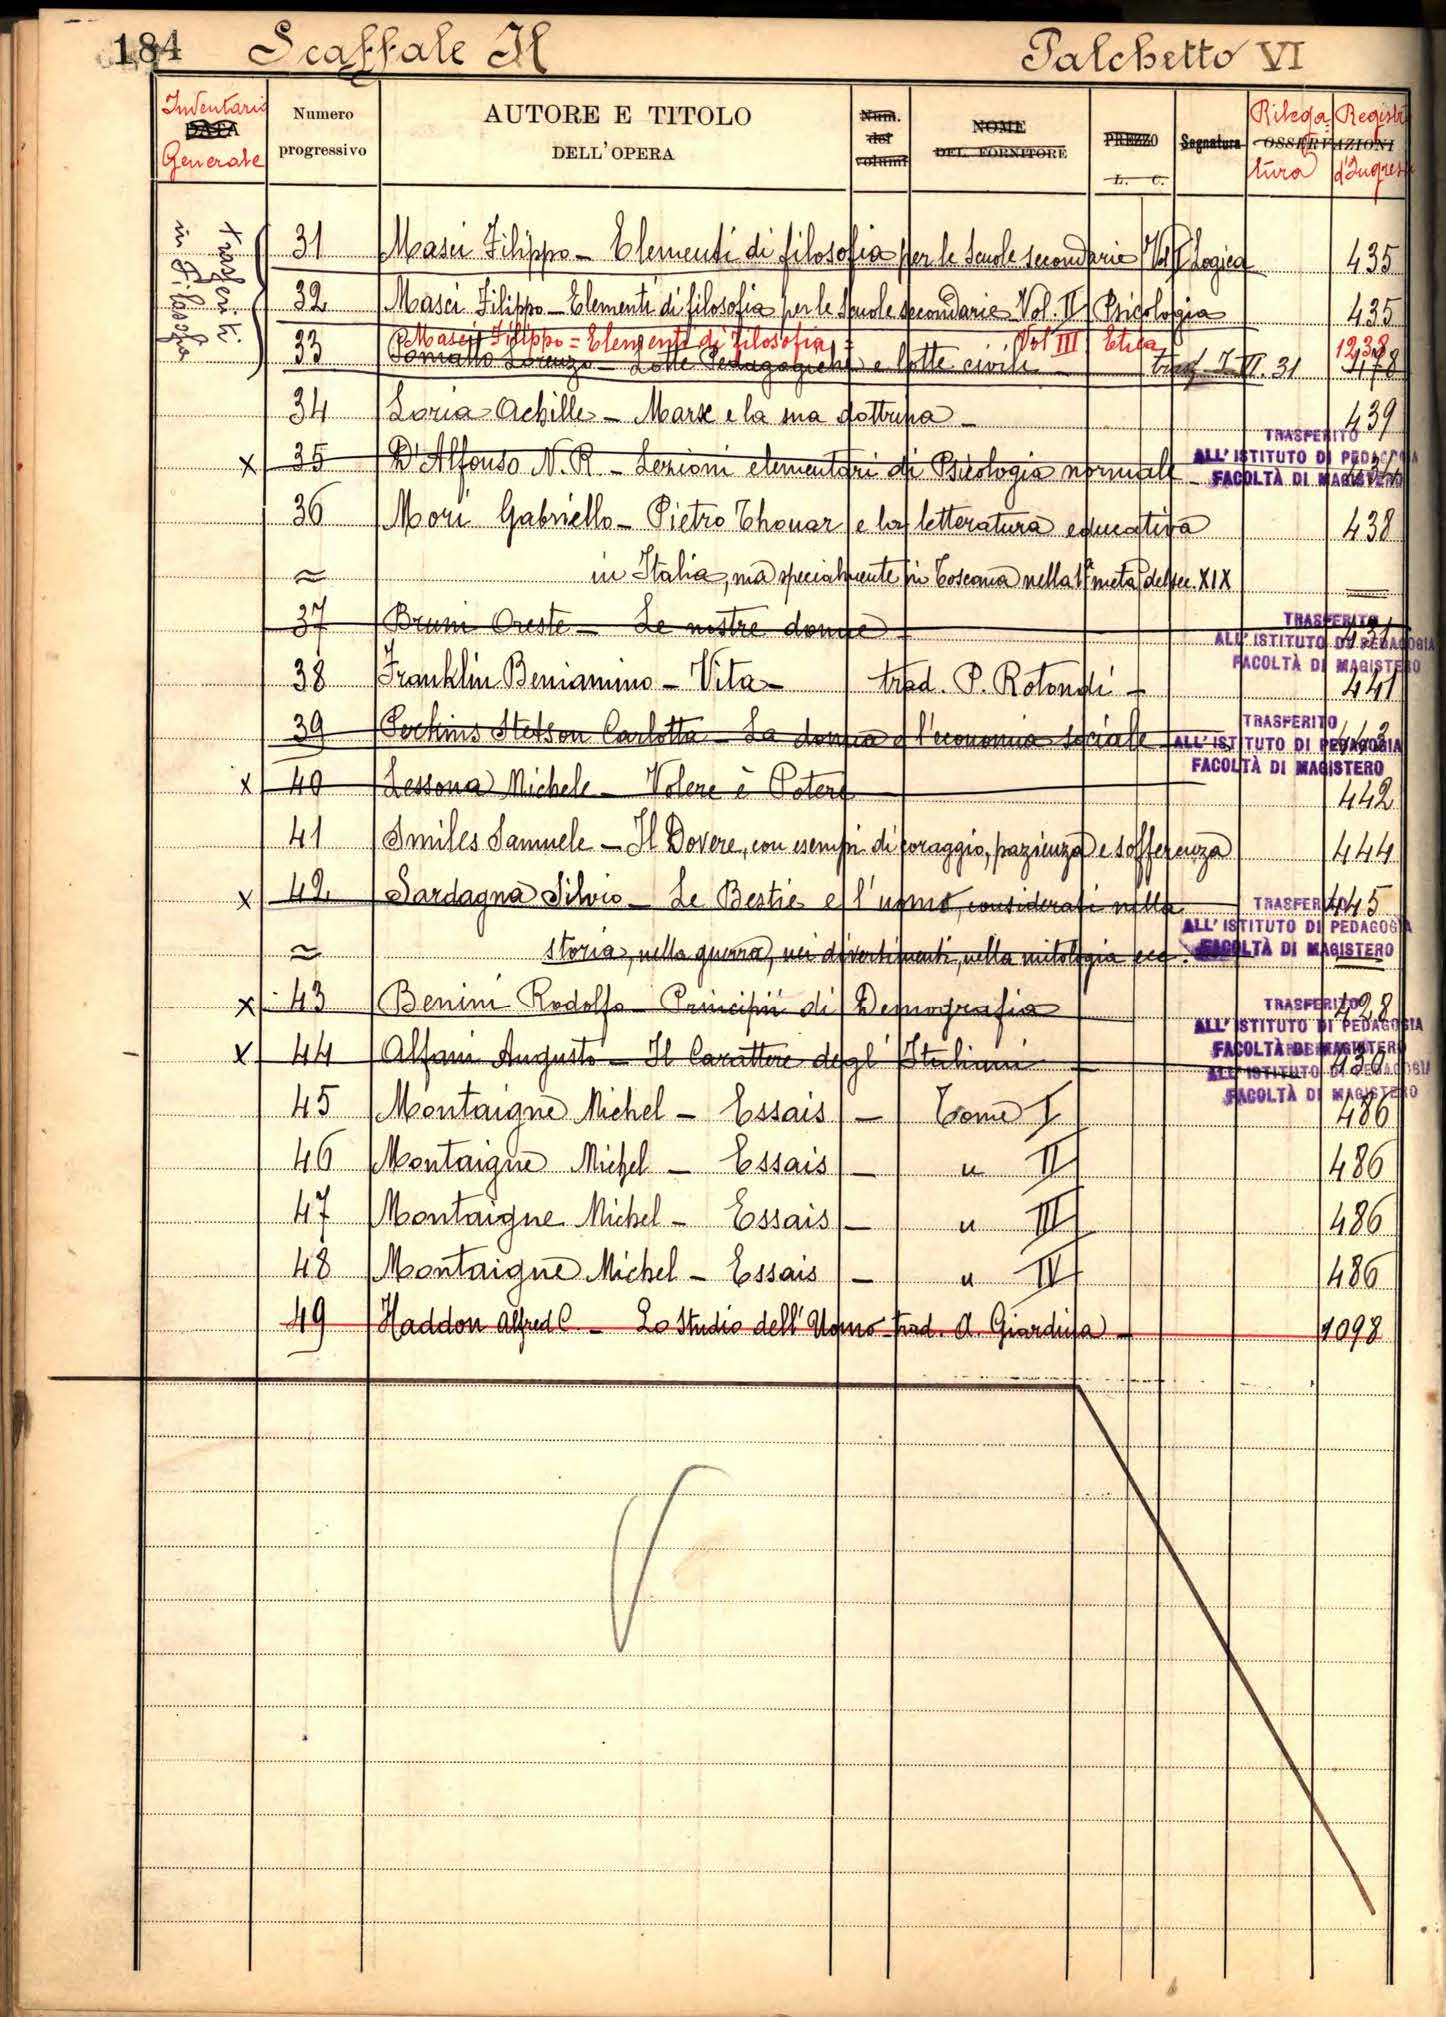 184 Scaffale II Palchetto VI
Inventario Generale
DATA
Numero progressivo
AUTORE E TITOLO DELL'OPERA
Num. dei volumi
NOME DEL FORNITORE
PREZZO
L. C.
Segnatura
OSSERVAZIONI
Rilegatura
Registr d'Ingres
trasferiti in Filosofia
31 Masci Filippo – Elementi di filosofia per le Scuole secondarie Vol I Logica 435
32 Masci Filippo – Elementi di filosofia per le Scuole secondarie Vol. II Psicologia 435
Masci Filippo = Elementi di Filosofia = Vol III Etica 1238
33 Lorenzo – Lotte Pedagogiche e lotte civili – trasf. I VI. 31 478
34 Loria Achille – Marx e la sua dottrina – 439
x 35 D'Alfonso N. R. – Lezioni elementari di Psicologia normale –
TRASFERITO
ALL'ISTITUTO DI PEDAGOGIA
FACOLTÀ DI MAGISTERO
36 Mori Gabriello – Pietro Thouar e la letteratura educativa 438
≈ in Italia, ma specialmente in Toscana nella 1ª metà del sec. XIX
37 Bruni Oreste – Le nostre donne – 431
TRASFERITO
ALL'ISTITUTO DI PEDAGOGIA
FACOLTÀ DI MAGISTERO
38 Franklin Beniamino – Vita – trad. P. Rotondi – 441
39 Perkins Stetson Carlotta – La donna e l'economia sociale – 443
TRASFERITO
ALL'ISTITUTO DI PEDAGOGIA
FACOLTÀ DI MAGISTERO
x 40 Lessona Michele – Volere è Potere 442
41 Smiles Samuele – Il Dovere, con esempi di coraggio, pazienza e sofferenza 444
x 42 Sardagna Silvio – Le Bestie e l'uomo, considerati nella 445
TRASFERITO
ALL'ISTITUTO DI PEDAGOGIA
FACOLTÀ DI MAGISTERO
≈ storia, nella guerra, nei divertimenti, nella mitologia ecc.
x 43 Benini Rodolfo – Principii di Demografia 428
TRASFERITO
ALL'ISTITUTO DI PEDAGOGIA
FACOLTÀ DI MAGISTERO
x 44 Alfani Augusto – Il Carattere degl'Italiani – 430
ALL'ISTITUTO DI PEDAGOGIA
FACOLTÀ DI MAGISTERO
45 Montaigne Michel – Essais – Tome I 486
46 Montaigne Michel – Essais – " II 486
47 Montaigne Michel – Essais – " III 486
48 Montaigne Michel – Essais – " IV 486
49 Haddon Alfred C. – Lo Studio dell'Uomo – trad. A. Giardina – 1098